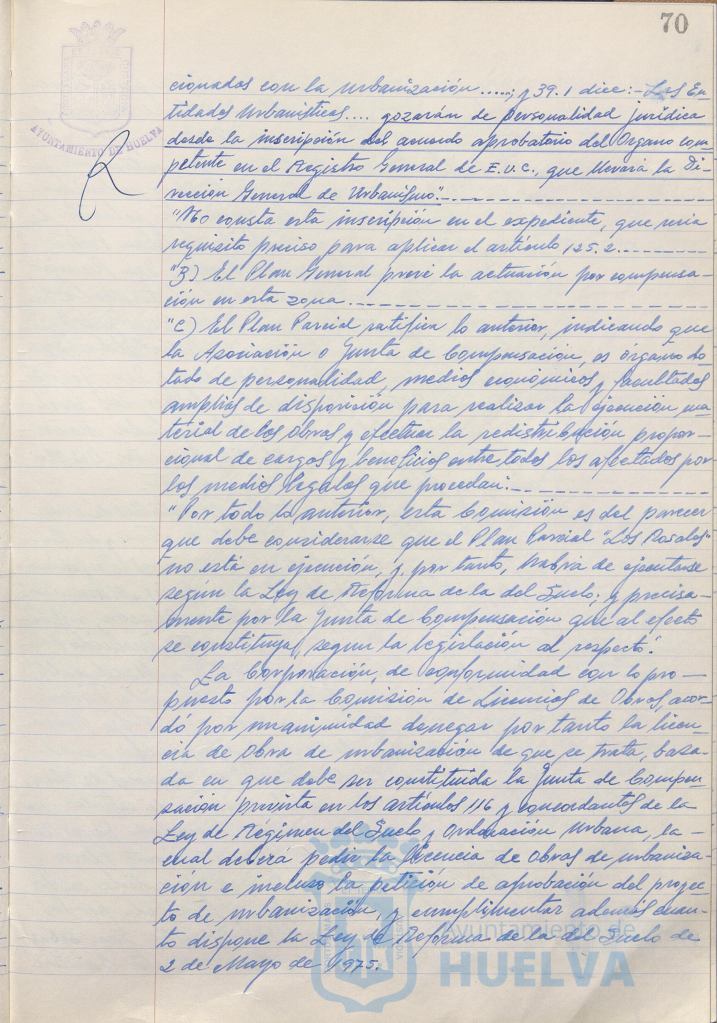 70
AYUNTAMIENTO DE HUELVA
cionados con la urbanización .....; y 39.1 dice:- Las En
tidades Urbanísticas.... gozarán de personalidad jurídica
desde la inscripción del acuerdo aprobatorio del Organo com
petente en el Registro General de E.U.C., que llevará la Di-
rección General de Urbanismo".-
"No consta esta inscripción en el expediente, que sería
requisito preciso para aplicar el artículo 125.2.
"B) El Plan General prevé la actuación por compensa-
ción en esta zona.
"C) El Plan Parcial ratifica lo anterior, indicando que
la Asociación o Junta de Compensación, es órgano do-
tado de personalidad, medios económicos y facultades
amplias de disposición para realizar la ejecución ma-
terial de las obras y efectuar la redistribución propor-
cional de cargas y beneficios entre todos los afectados por
los medios legales que procedan.
"Por todo lo anterior, esta Comisión es del parecer
que debe considerarse que el Plan Parcial "Los Rosales"
no está en ejecución, y por tanto, habría de ejecutarse
según la Ley de Reforma de la del Suelo; y precisa-
mente por la Junta de Compensación que al efecto
se constituya, según la legislación al respecto".
La Corporación, de conformidad con lo pro-
puesto por la Comisión de Licencias de Obras, acor-
dó por unanimidad denegar por tanto la licen-
cia de obra de urbanización de que se trata, basa-
da en que debe ser constituida la Junta de Compen-
sación prevista en los artículos 116 y concordantes de la
Ley de Régimen del Suelo y Ordenación Urbana, la-
cual deberá pedir la licencia de obras de urbaniza-
ción e incluso la petición de aprobación del proyec-
to de urbanización, y cumplimentar además cuan-
to dispone la Ley de Reforma de la del Suelo de
2 de Mayo de 1975.
Ayuntamiento de
HUELVA